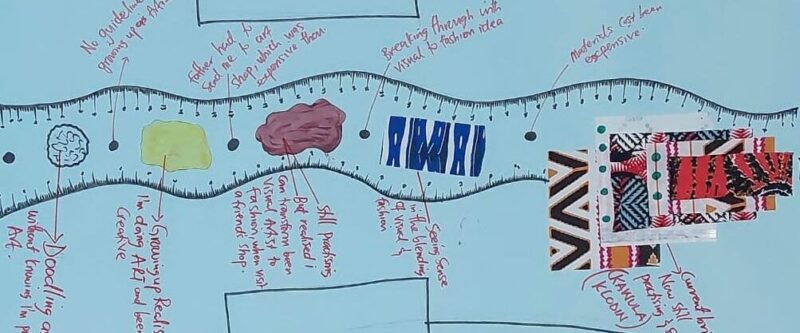 No guideline
growing up as Artis
Father had to
send me to art
shop, which was
expensive then.
Breaking through with
visual to fashion idea
Materials cost been
expensive.
Doodling a
without knowing I'm p
Art.
Growing up Realis
I'm doing ART and been
Creative
still practising
But realised i
can transform been
Visual Artist to
Fashion when visit
a friend shop.
Seeing Sense
in the blending
of visual &
fashion
Current b
Now still
practising